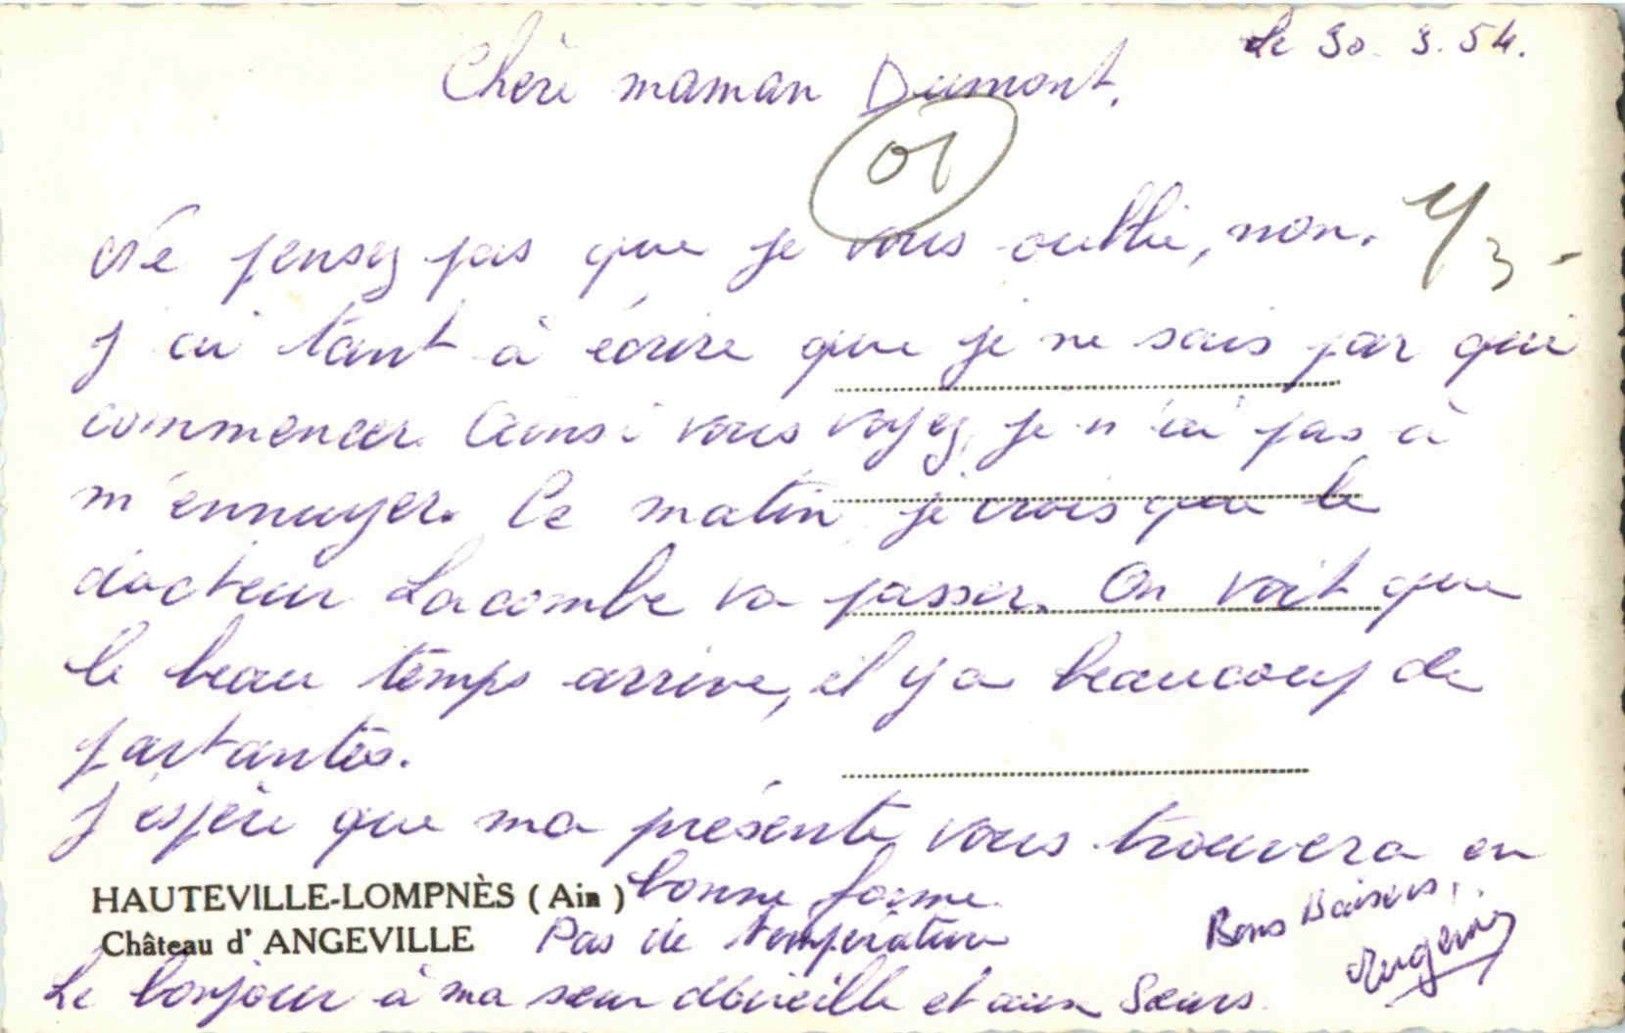 le 30. 3. 54.
Chère maman Dumont.
01
Ne pensez pas que je vous oublie, non.
J'ai tant à écrire que je ne sais par qui
commencer. Ainsi vous voyez, je n'ai pas à
m'ennuyer. Ce matin je crois que le
docteur Lacombe va passer. On voit que
le beau temps arrive, il y a beaucoup de
partantes.
J'espère que ma présente vous trouvera en
bonne forme.
HAUTEVILLE-LOMPNÈS (Ain)
Château d'ANGEVILLE
Pas de température
Bons Baisers,
Le bonjour à ma sœur et aux Sœurs.